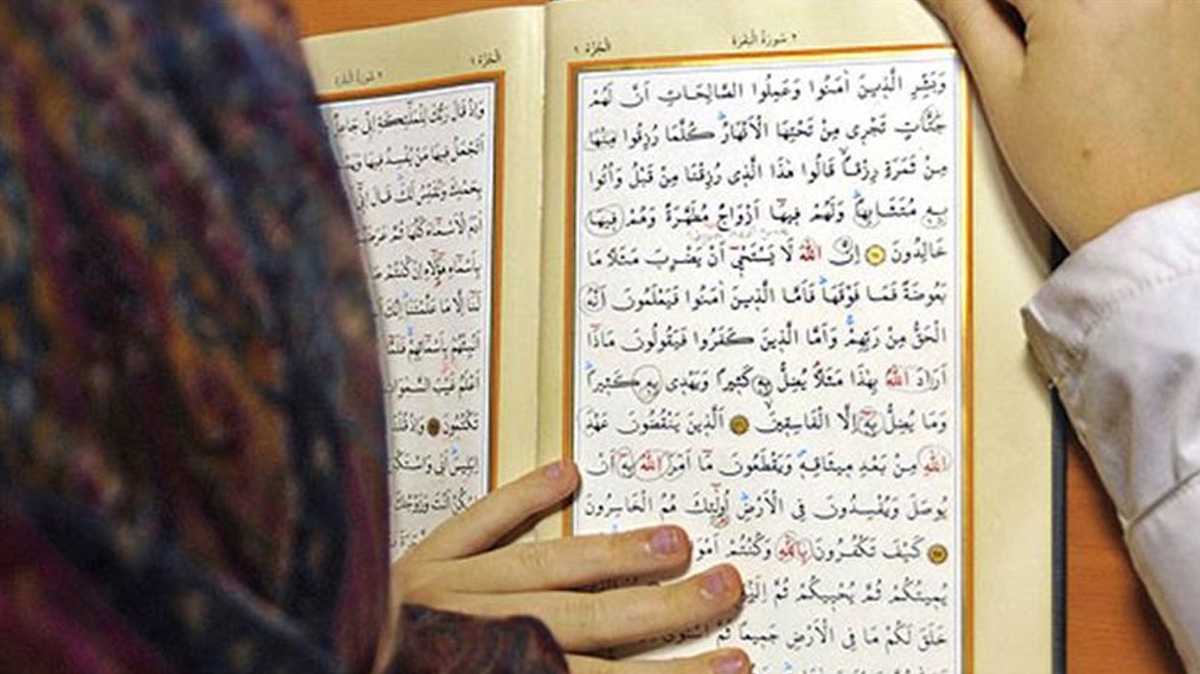 ٢ سُورَةُ الْبَقَرَةِ
اَلْجُزْءُ ١
وَبَشِّرِ الَّذ۪ينَ اٰمَنُوا وَعَمِلُوا الصَّالِحَاتِ اَنَّ لَهُمْ
جَنَّاتٍ تَجْر۪ي مِنْ تَحْتِهَا الْاَنْهَارُ كُلَّمَا رُزِقُوا مِنْهَا
مِنْ ثَمَرَةٍ رِزْقًا قَالُوا هٰذَا الَّذ۪ي رُزِقْنَا مِنْ قَبْلُ وَاُتُوا
بِه۪ مُتَشَابِهًا وَلَهُمْ ف۪يهَا اَزْوَاجٌ مُطَهَّرَةٌ وَهُمْ ف۪يهَا
خَالِدُونَ اِنَّ اللّٰهَ لَا يَسْتَحْي۪ اَنْ يَضْرِبَ مَثَلًا مَا
بَعُوضَةً فَمَا فَوْقَهَا فَاَمَّا الَّذ۪ينَ اٰمَنُوا فَيَعْلَمُونَ اَنَّهُ
الْحَقُّ مِنْ رَبِّهِمْ وَاَمَّا الَّذ۪ينَ كَفَرُوا فَيَقُولُونَ مَاذَا
اَرَادَ اللّٰهُ بِهٰذَا مَثَلًا يُضِلُّ بِه۪ كَث۪يرًا وَيَهْد۪ي بِه۪ كَث۪يرًا
وَمَا يُضِلُّ بِه۪ اِلَّا الْفَاسِق۪ينَ اَلَّذ۪ينَ يَنْقُضُونَ عَهْدَ
اللّٰهِ مِنْ بَعْدِ م۪يثَاقِه۪ وَيَقْطَعُونَ مَا اَمَرَ اللّٰهُ بِه۪ اَنْ
يُوصَلَ وَيُفْسِدُونَ فِي الْاَرْضِ اُولٰئِكَ هُمُ الْخَاسِرُونَ
كَيْفَ تَكْفُرُونَ بِاللّٰهِ وَكُنْتُمْ
يُم۪يتُكُمْ ثُمَّ يُحْي۪يكُمْ ثُمَّ
خَلَقَ لَكُمْ مَا فِي الْاَرْضِ جَم۪يعًا ثُمَّ
اَلْجُزْءُ ١
٢ سُورَةُ الْبَقَرَةِ
وَاِذْ قَالَ رَبُّكَ لِلْمَلٰئِكَةِ اِنّ۪ي
اَتَجْعَلُ ف۪يهَا مَنْ يُفْسِدُ ف۪يهَا
بِحَمْدِكَ وَنُقَدِّسُ لَكَ قَالَ
اٰدَمَ الْاَسْمَاءَ كُلَّهَا ثُمَّ
بِاَسْمَاءِ هٰؤُلَاءِ اِنْ كُنْتُمْ
لَنَا اِلَّا مَا عَلَّمْتَنَا
اَنْبِئْهُمْ بِاَسْمَائِهِمْ
اَعْلَمُ غَيْبَ السَّمٰوَاتِ
تَكْتُمُونَ وَاِذْ قُلْنَا
اِبْل۪يسَ اَبٰى